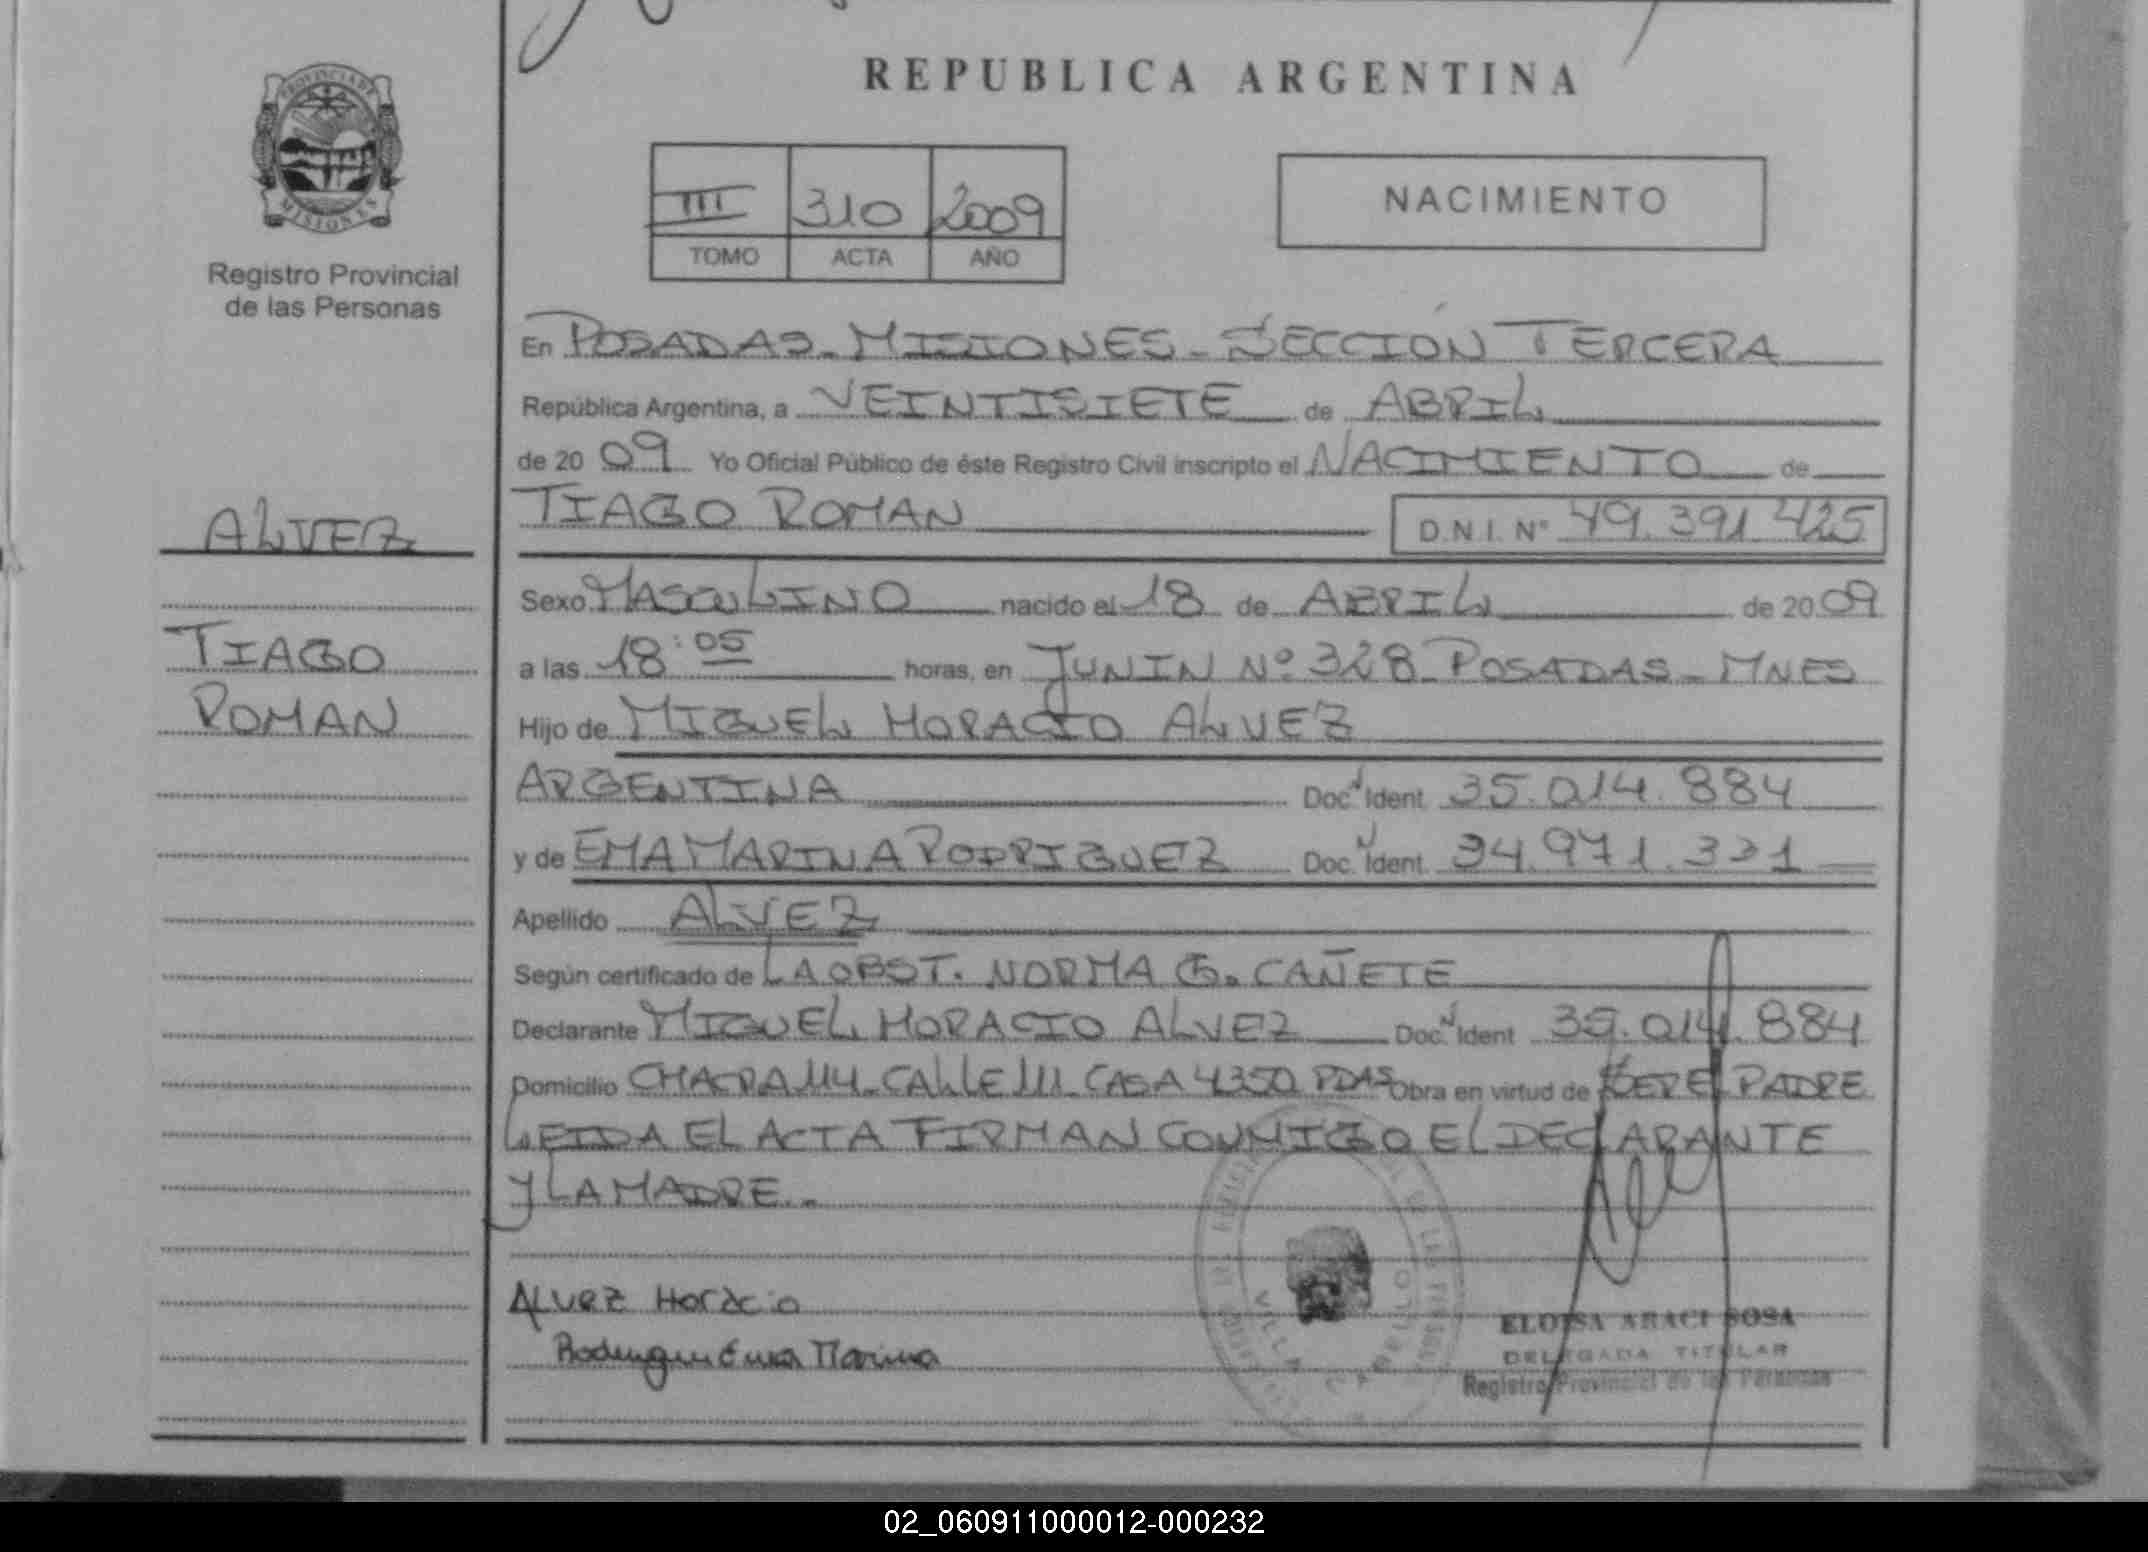 REPUBLICA ARGENTINA
PROVINCIA DE
MISIONES
Registro Provincial
de las Personas
III 310 2009
TOMO ACTA AÑO
NACIMIENTO
En POSADAS-MISIONES-SECCIÓN TERCERA
República Argentina, a VEINTISIETE de ABRIL
de 20 09 Yo Oficial Público de éste Registro Civil inscripto el NACIMIENTO de
TIAGO ROMAN D.N.I. Nº 49.391.425
ALVEZ
TIAGO
ROMAN
Sexo MASCULINO nacido el 18 de ABRIL de 20 09
a las 18:05 horas, en JUNIN Nº 328-POSADAS-MNES
Hijo de MIGUEL HORACIO ALVEZ
ARGENTINA Doc. Ident. 35.014.884
y de EMA MARINA RODRIGUEZ Doc. Ident. 34.971.331
Apellido ALVEZ
Según certificado de LA OBST. NORMA G. CAÑETE
Declarante MIGUEL HORACIO ALVEZ Doc. Ident 35.014.884
Domicilio CHACRA 114-CALLE 111-CASA 4350 PDAS Obra en virtud de SER EL PADRE
LEIDA EL ACTA FIRMAN CONMIGO EL DECLARANTE
Y LA MADRE.-
ALVEZ Horacio
Rodriguez Ema Marina
VILLA CABELLO
ELOISA ARACI SOSA
DELEGADA TITULAR
Registro Provincial de las Personas
02_060911000012-000232